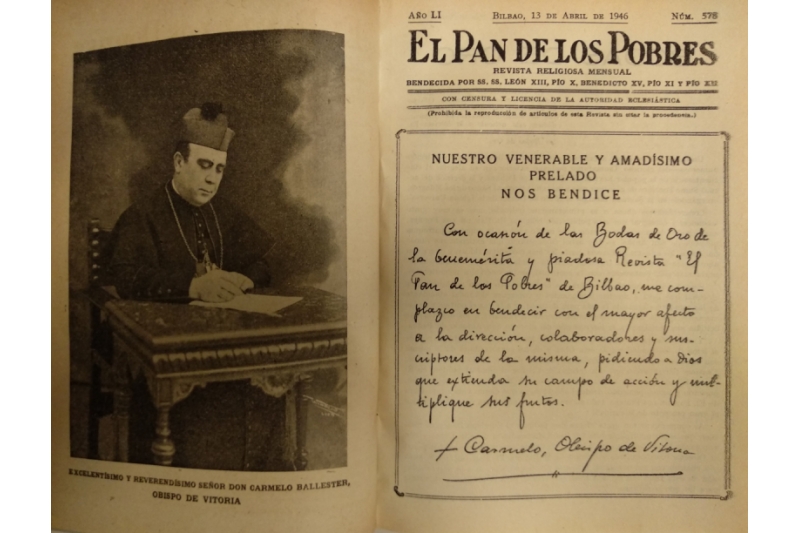 EXCELENTÍSIMO Y REVERENDÍSIMO SEÑOR DON CARMELO BALLESTER,
OBISPO DE VITORIA
AÑO LI BILBAO, 13 DE ABRIL DE 1946 NÚM. 578
EL PAN DE LOS POBRES
REVISTA RELIGIOSA MENSUAL
BENDECIDA POR SS. SS. LEÓN XIII, PÍO X, BENEDICTO XV, PÍO XI Y PÍO XII
CON CENSURA Y LICENCIA DE LA AUTORIDAD ECLESIÁSTICA
(Prohibida la reproducción de artículos de esta Revista sin citar la procedencia.)
NUESTRO VENERABLE Y AMADÍSIMO
PRELADO
NOS BENDICE
Con ocasión de las Bodas de Oro de
la benemérita y piadosa Revista "El
Pan de los Pobres" de Bilbao, me com-
plazco en bendecir con el mayor afecto
a la dirección, colaboradores y sus-
criptores de la misma, pidiendo a Dios
que extienda su campo de acción y mul-
tiplique sus frutos.
+ Carmelo, Obispo de Vitoria